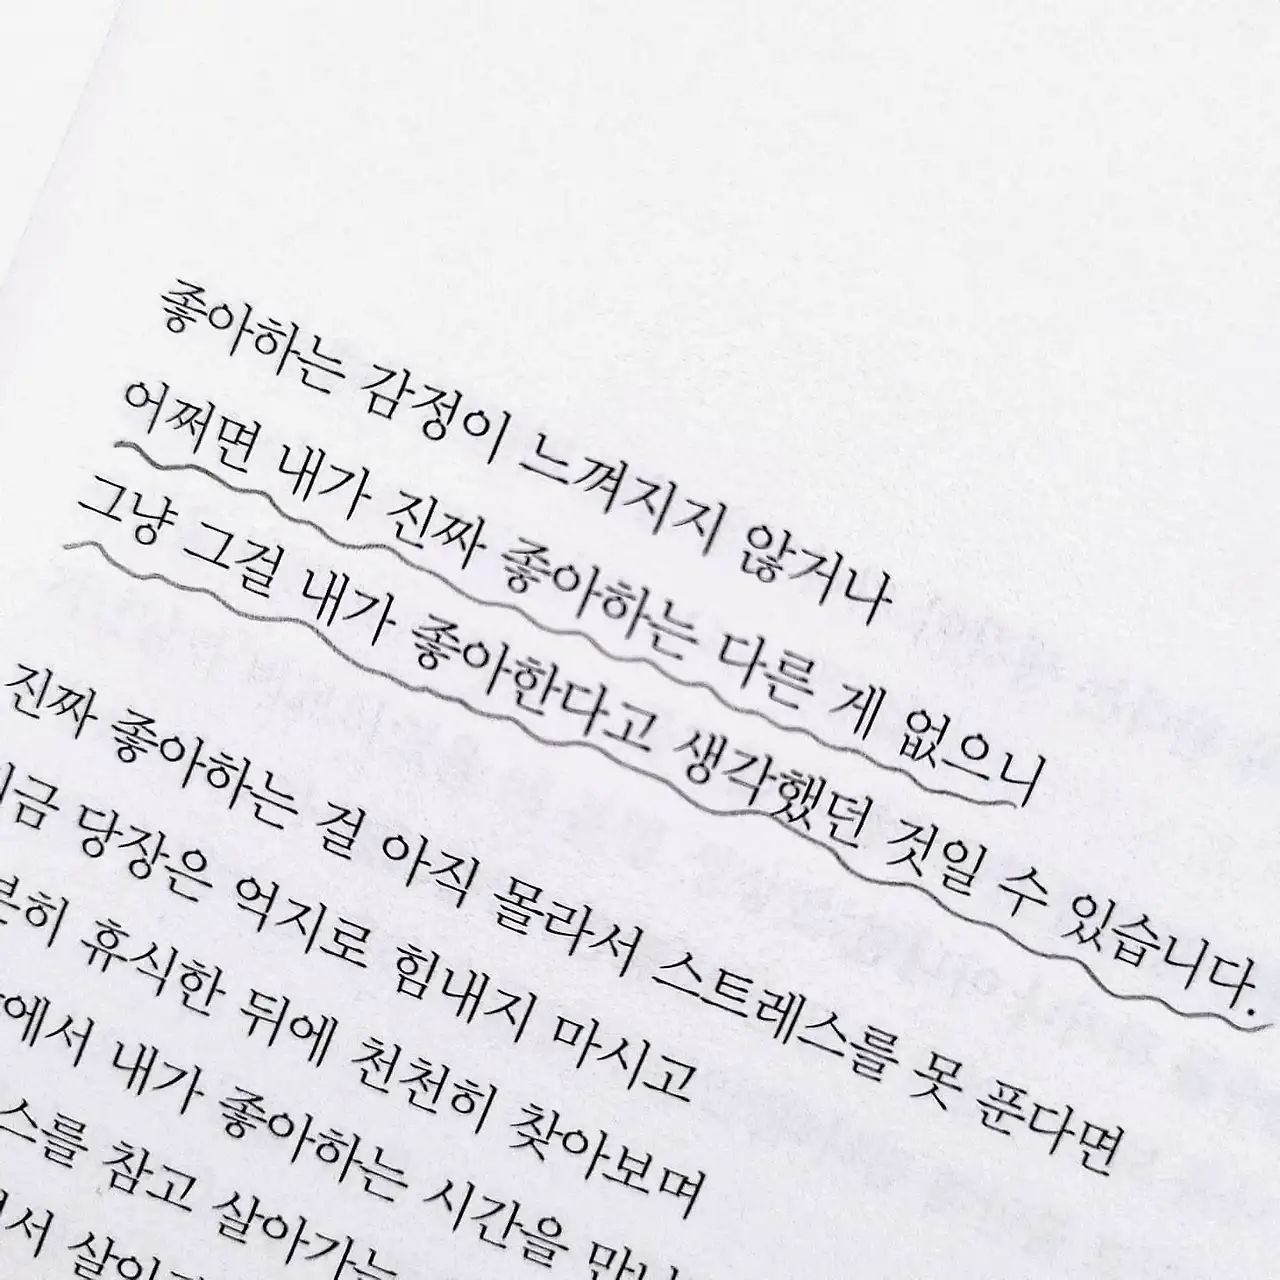 좋아하는 감정이 느껴지지 않거나
어쩌면 내가 진짜 좋아하는 다른 게 없으니
그냥 그걸 내가 좋아한다고 생각했던 것일 수 있습니다.
진짜 좋아하는 걸 아직 몰라서 스트레스를 못 푼다면
당장은 억지로 힘내지 마시고
휴식한 뒤에 천천히 찾아보며
내가 좋아하는 시간을
참고 살아가는